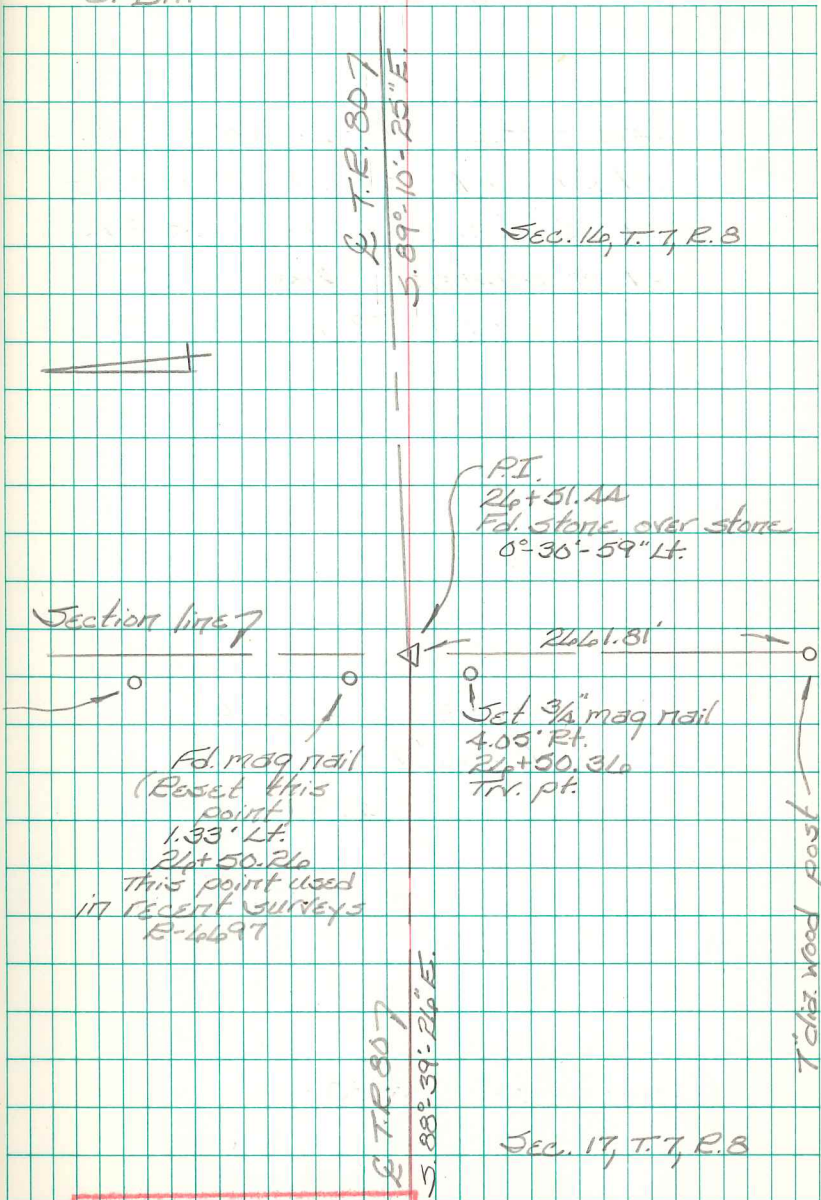 ℄ T.R. 807
S.89°-10'-25"E.
Sec. 16, T. 7, R. 8
P.I.
26+51.44
Fd. stone over stone
0°-30'-59" Lt.
Section line
2661.81'
Set 3/4" mag nail
4.05' Rt.
26+50.36
Trv. pt.
Fd. mag nail
(Reset this
point
1.33' Lt.
26+50.26
This point used
in recent surveys
R-6697
7" dia. wood post
℄ T.R. 807
S.88°-39'-26"E.
Sec. 17, T. 7, R. 8